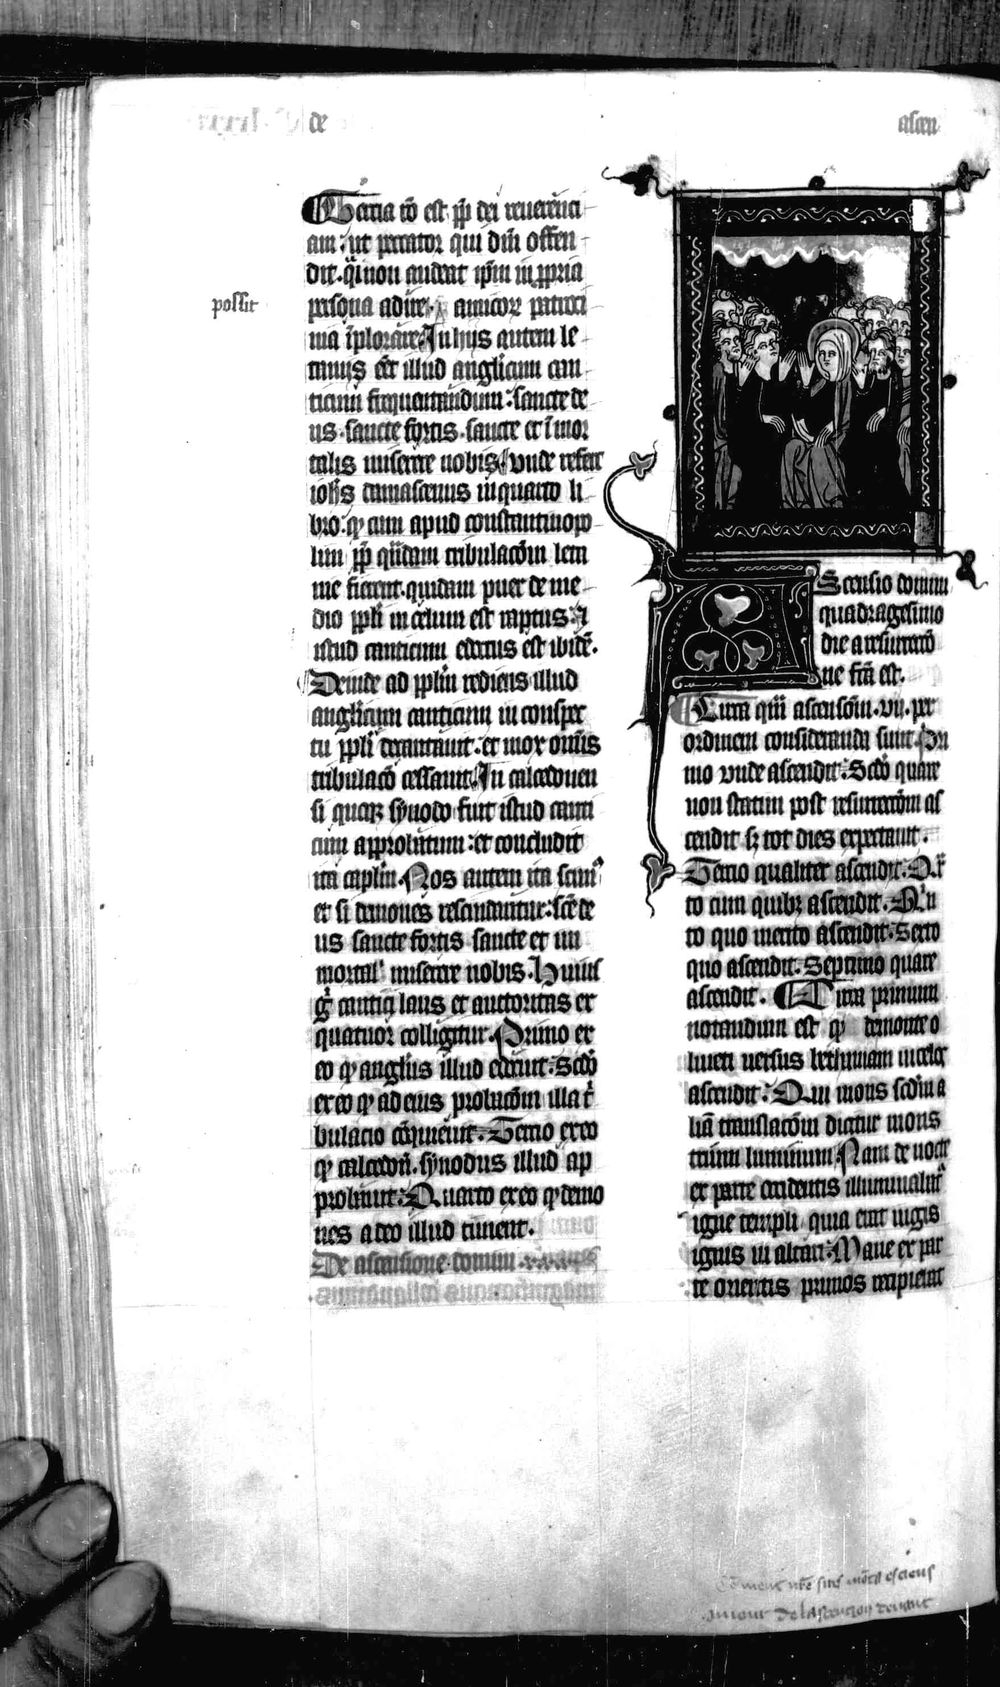 de
ascen
Tercia rō est ꝓp̄ dei reuerenci
am: ut peccator qui dm̄ offen
dit. qͥ non audeat ip̄m in ꝓpria
possit
persona adire: amicoꝝ patroci
nia īplorare. In hiis autem le
taniis cēt illud anglicum can
ticum frequentandum: sancte de
us. sancte fortis. sancte et īmor
talis miserere nobis. vnde refert
ioh̄s damascenus in quarto li
bro: ꝙ cum apud constantinopo
lim ꝓp̄ qͣndam tribulacōm leta
nie fierent. quidam puer de me
dio ppl̄i in celum est raptus: ⁊
istud canticum edoctus est ibidē.
Deinde ad ppl̄m rediens illud
anglicum canticum in conspec
tu ppl̄i decantauit. et mox om̄is
tribulacō cessauit. In calcedonen
si quoqꝫ synodo fuit istud canti
cum approbatum: et concludit
ita capl̄m. Nos autem ita
et si demones
us sancte fortis sancte et im
mortal' miserere nobis. Huius
gͦ cantici laus et auctoritas ex
quatuor colligitur. Primo ex
eo ꝙ angl̄us illud edocuit: Scd̄o
ex eo ꝙ ad eius probacōm illa tͥ
bulacio cōquieuit. Tercio ex eo
ꝙ calcedoñ. synodus illud ap
probauit: Quarto ex eo ꝙ demo
nes adeo illud timent.
De ascensione domini
Ascensio domini
quadragesimo
die a resurrectō
ne fc̄a est.
Circa quā ascensōm. vii. per
ordinem consideranda sunt. Pri
mo vnde ascendit: Scd̄o quare
non statim post resurrectōm as
cendit sꝫ tot dies expectauit.
Tercio qualiter ascendit: Qͣr
to cum quibꝫ ascendit. Qͥn
to quo merito ascendit. Sexto
quo ascendit. Septimo quare
ascendit. Circa primum
notandum est ꝙ de monte o
liueti uersus bethaniam in celos
ascendit. Qui mons scd̄m a
liā translacōm dicitur mons
trium luminum. Nam de nocte
ex parte occidentis illuminabatͬ
igne templi quia erat iugis
ignis in altari: Mane ex par
te orientis primos recipiebat